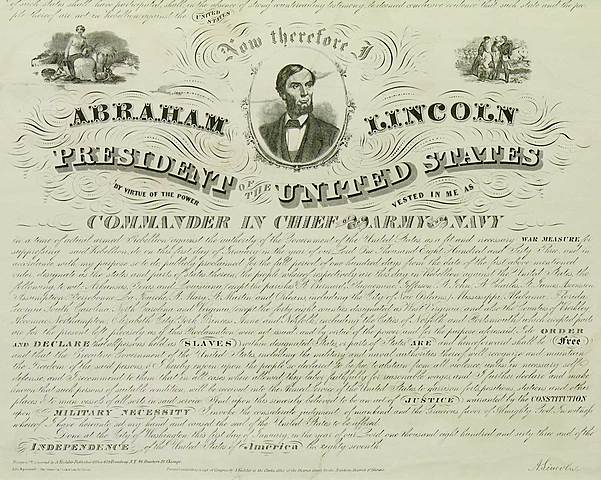 of such States shall have participated, shall in the absence of strong countervailing testimony be deemed conclusive evidence that such State and the peo-
ple thereof are not in Rebellion against the UNITED STATES
Now therefore I
ABRAHAM LINCOLN
PRESIDENT OF THE UNITED STATES
BY VIRTUE OF THE POWER VESTED IN ME AS
COMMANDER IN CHIEF OF THE ARMY AND NAVY
in a time of actual armed Rebellion against the authority of the Government of the United States as a fit and necessary WAR MEASURE for
suppressing said Rebellion, do on this first day of January in the year of our Lord One Thousand Eight Hundred and Sixty Three and in
accordance with my purpose so to do, publicly proclaimed for the full period of one hundred days from the date of the first above mentioned
order, designate as the states and parts of States wherein the people whereof respectively are this day in Rebellion against the United States, the
following to wit: Arkansas, Texas and Louisiana, except the parishes of St. Bernard, Plaquemines, Jefferson, St. John, St. Charles, St. James, Ascension
Assumption, Terrebonne, La Fourche, St. Mary, St. Martin and Orleans, including the City of New Orleans, Mississippi, Alabama, Florida,
Georgia, South Carolina, North Carolina and Virginia, except the forty eight counties designated as West Virginia and also the Counties of Berkley,
Accomac, Northampton, Elizabeth City, York, Princess Anne and Norfolk, including the Cities of Norfolk and Portsmouth, which excepted parts
are for the present left precisely as if this Proclamation were not issued and by virtue of the power and for the purpose aforesaid I do ORDER
AND DECLARE that all persons held as SLAVES within designated States, or parts of States ARE and henceforward shall be Free
and that the Executive Government of the United States, including the military and naval authorities thereof, will recognize and maintain
the Freedom of the said persons, & I hereby enjoin upon the people so declared to be free to abstain from all violence unless in necessary self
defense, and I recommend to them that in all cases when allowed they labor faithfully for reasonable wages and I further declare and make
known that such persons of suitable condition will be received into the Armed Service of the United States to garrison forts, positions, stations and other
places & to man vessels of all sorts in said service. And upon this sincerely believed to be an act of JUSTICE warranted by the CONSTITUTION
upon MILITARY NECESSITY I invoke the considerate judgment of mankind and the Gracious favor of Almighty God. In witness
whereof I have hereunto set my hand and caused the seal of the United States to be affixed.
Done at the City of Washington this first day of January, in the year of our Lord one thousand eight hundred and sixty three and of the
INDEPENDENCE of the United States of America the eighty seventh.
A. Lincoln